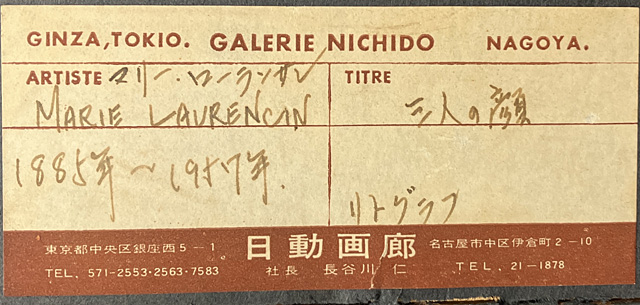 GINZA, TOKIO. GALERIE NICHIDO NAGOYA.
ARTISTE マリー・ローランサン
MARIE LAURENCIN
1885年~1957年.
TITRE
三人の顔
リトグラフ
東京都中央区銀座西5-1 日動画廊 名古屋市中区伊倉町2-10
TEL. 571-2553・2563・7583 社長 長谷川仁 TEL. 21-1878